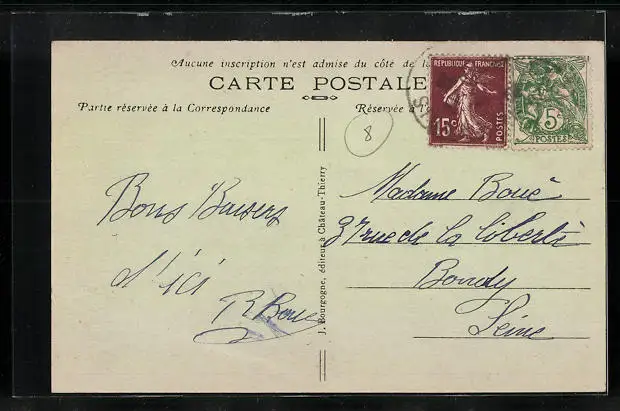 Aucune inscription n'est admise du côté de la
CARTE POSTALE
Partie réservée à la Correspondance
Réservée à l'
8
RÉPUBLIQUE FRANÇAISE
15c
POSTES
5c
POSTES
Bons Baisers
d'ici
R Boué
J. Bourgogne, éditeur à Château-Thierry
Madame Boué
37 rue de la liberté
Bondy
Seine